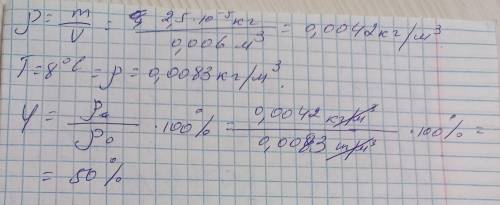 ρ = m/V = 2,5·10⁻⁵ кг / 0,006 м³ = 0,0042 кг/м³
T = 8°C = ρ = 0,0083 кг/м³.
φ = ρₐ/ρ₀ · 100% = 0,0042 кг/м³ / 0,0083 кг/м³ · 100% =
= 50%